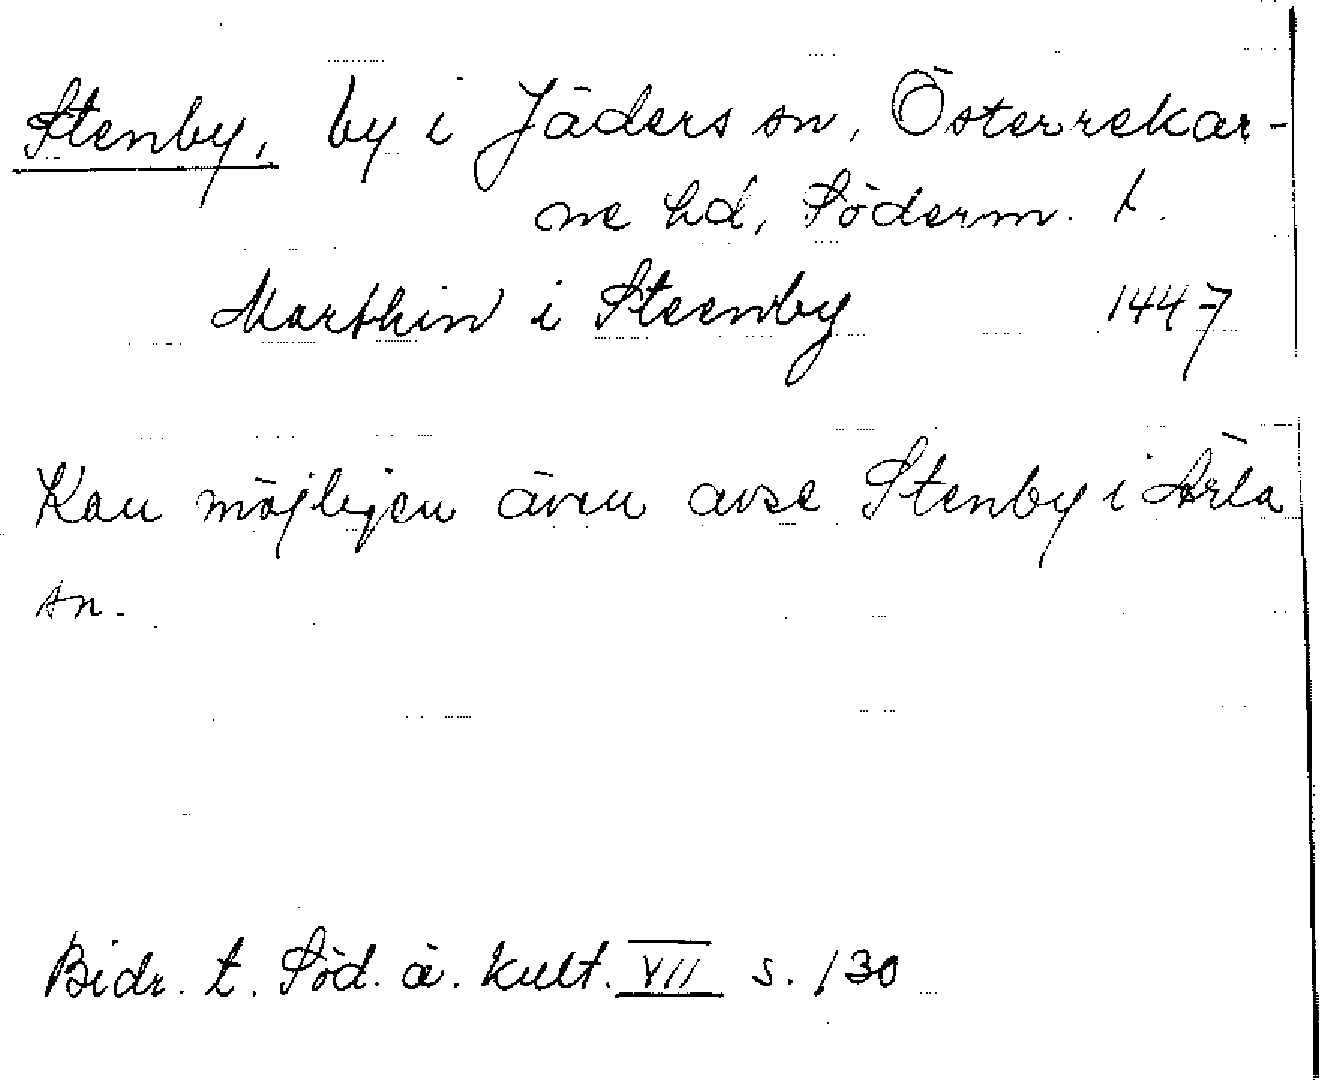 Stenby, by i Jäders sn, Österrekar-
ne hd, Söderm. l.
Marthin i Steenby 1447
Kan möjligen även avse Stenby i Ärla
sn.
Bidr. t. Söd. ä. kult. VII s. 130